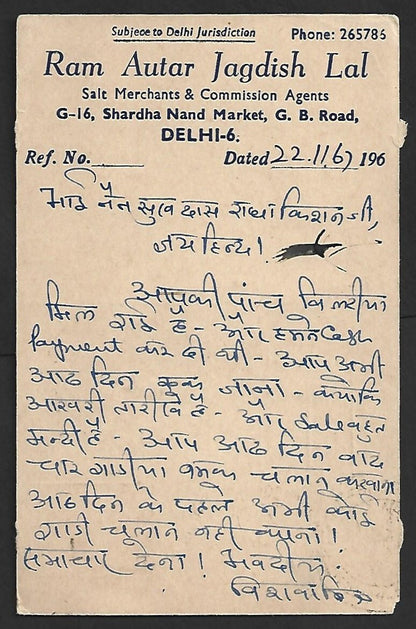 Subjece to Delhi Jurisdiction Phone: 265786
Ram Autar Jagdish Lal
Salt Merchants & Commission Agents
G-16, Shardha Nand Market, G. B. Road,
DELHI-6.
Ref. No. Dated 22.11.67 196
भाई नैन सुख दास राधा किशन जी,
जय हिन्द!
आपकी पांच बिल्टीया
मिल गई है - और हमने Cash
Payment कर दी थी - आप अभी
आठ दिन रूक जाना - क्योंकि
आखरी तारीखे है - और Sale बहुत
मन्दी है - आप आठ दिन बाद
चार गाडीया नमक चलान करवाना
आठ दिन के पहले अभी कोई
गाडी चलान नही करना!
समाचार देना! भवदीय: